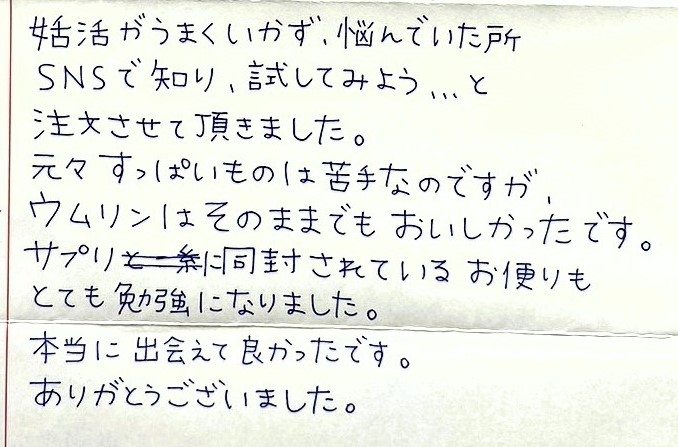 妊活がうまくいかず、悩んでいた所
SNSで知り、試してみよう...と
注文させて頂きました。
元々すっぱいものは苦手なのですが、
ウムリンはそのままでもおいしかったです。
サプリに同封されているお便りも
とても勉強になりました。
本当に出会えて良かったです。
ありがとうございました。